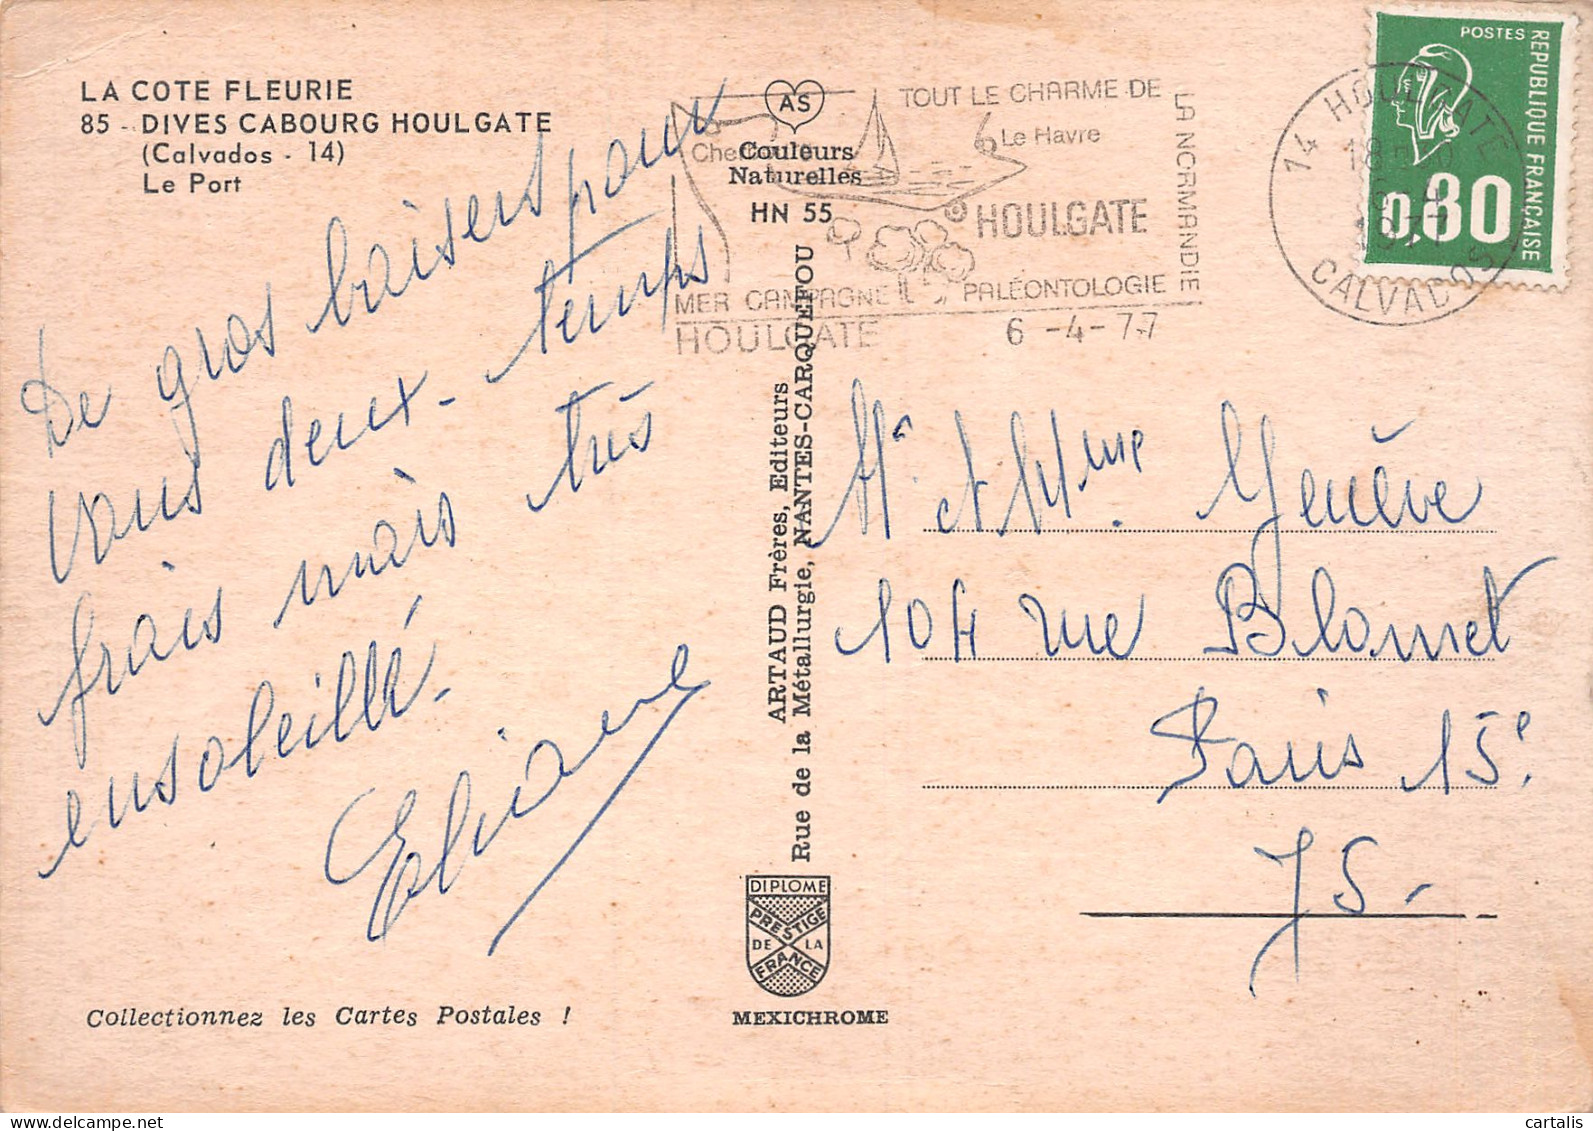 LA COTE FLEURIE
85 - DIVES CABOURG HOULGATE
(Calvados - 14)
Le Port
De gros baisers pour
vous deux - temps
frais mais très
ensoleillé.
Eliane
Collectionnez les Cartes Postales !
AS
Couleurs
Naturelles
HN 55
ARTAUD Frères, Editeurs
Rue de la Métallurgie, NANTES-CARQUEFOU
DIPLOME
PRESTIGE
DE LA
FRANCE
MEXICHROME
TOUT LE CHARME DE
LA NORMANDIE
Le Havre
HOULGATE
MER CAMPAGNE PALÉONTOLOGIE
HOULGATE 6 -4-77
14 HOULGATE
CALVADOS
1977
POSTES
REPUBLIQUE FRANÇAISE
0,80
Mr et Mme Genève
104 rue Blomet
Paris 15e
75 -
cartalis